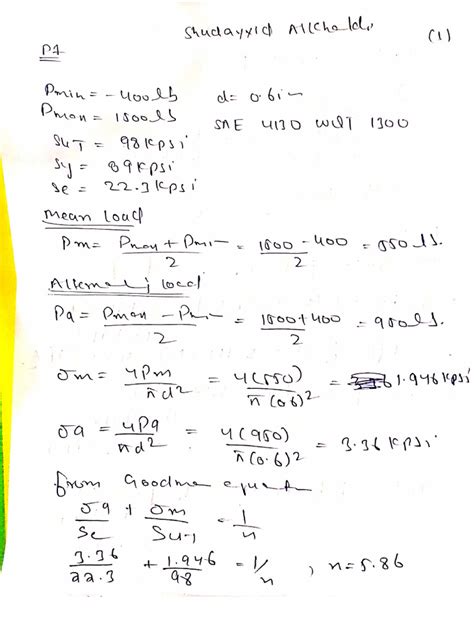 (1)
P1
Pmin = -400lb d = 0.6in
Pman = 1500lb SAE 4130 WQT 1300
SuT = 98 Kpsi
Sy = 89 Kpsi
Se = 22.3 Kpsi
Mean Load
Pm = Pmax + Pmin / 2 = 1500 - 400 / 2 = 550 lb.
load
Pa = Pman - Pmin / 2 = 1500 + 400 / 2 = 950 lb.
σm = 4Pm / πd² = 4(550) / π(0.6)² = 1.946 Kpsi
σa = 4Pa / πd² = 4(950) / π(0.6)² = 3.36 Kpsi
from Goodman equation
σa / Se + σm / Sut = 1 / n
3.36 / 22.3 + 1.946 / 98 = 1/n , n = 5.86